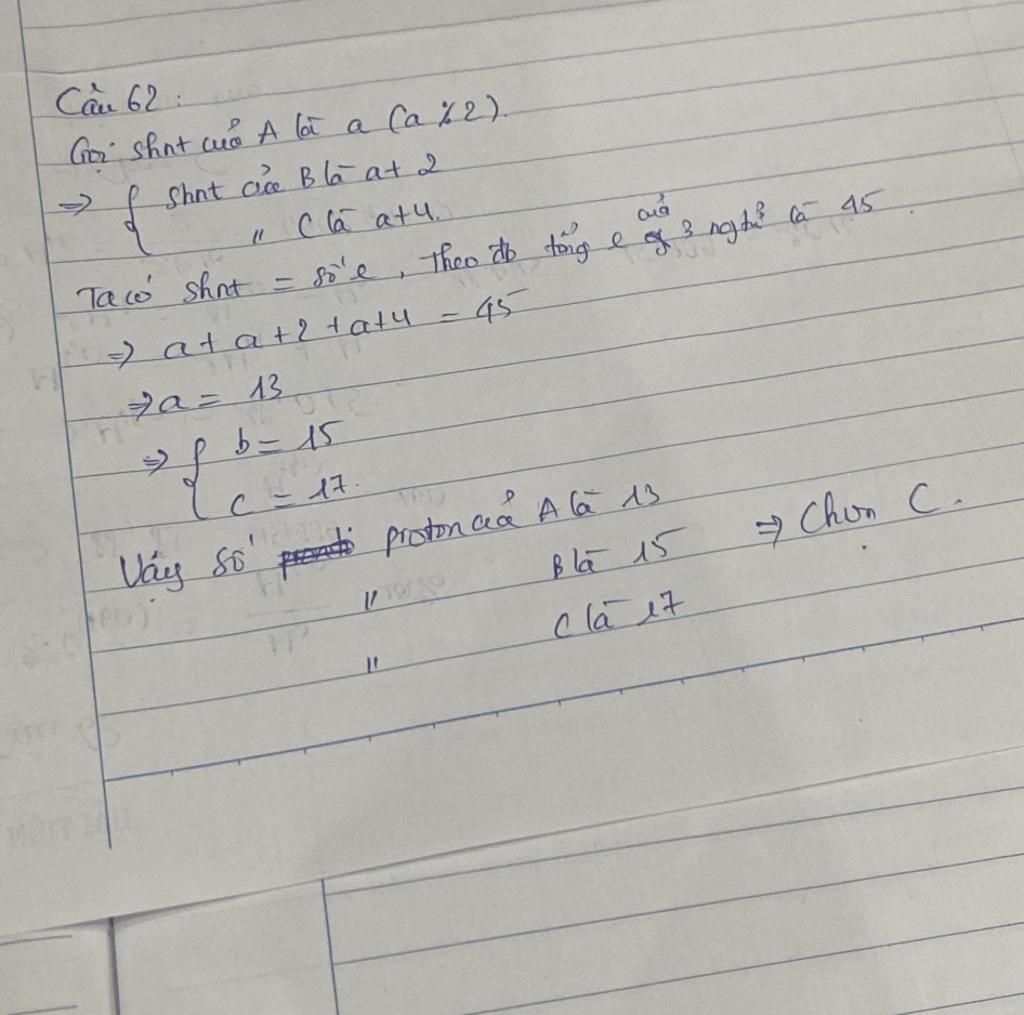 Câu 62 :
Gọi shnt của A là a (a % 2).
⇒ { shnt của B là a + 2
" C là a+4.
Ta có shnt = số e, Theo đb tổng e của 3 ngtử là 45.
⇒ a + a + 2 + a+4 = 45
⇒ a = 13
⇒ { b = 15
c = 17.
Vậy số proton của A là 13
" B là 15 ⇒ Chọn C.
" C là 17